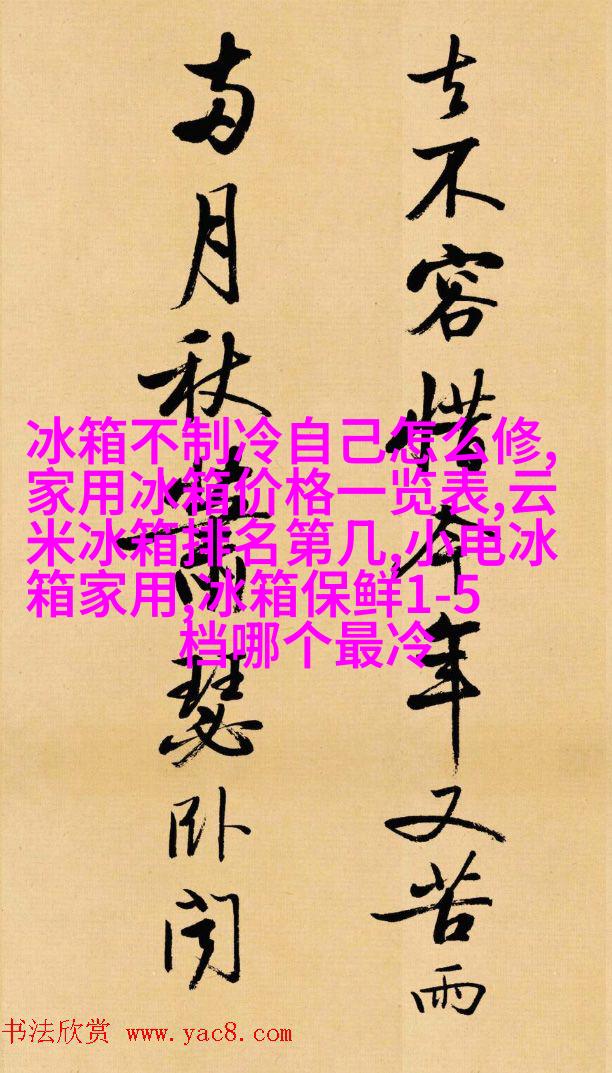 去不容惜今年又苦雨
两月秋萧瑟卧闻
冰箱不制冷自己怎么修,
家用冰箱价格一览表,云
米冰箱排名第几,小电冰
箱家用,冰箱保鲜1-5
档哪个最冷
书法欣赏 www.yac8.com